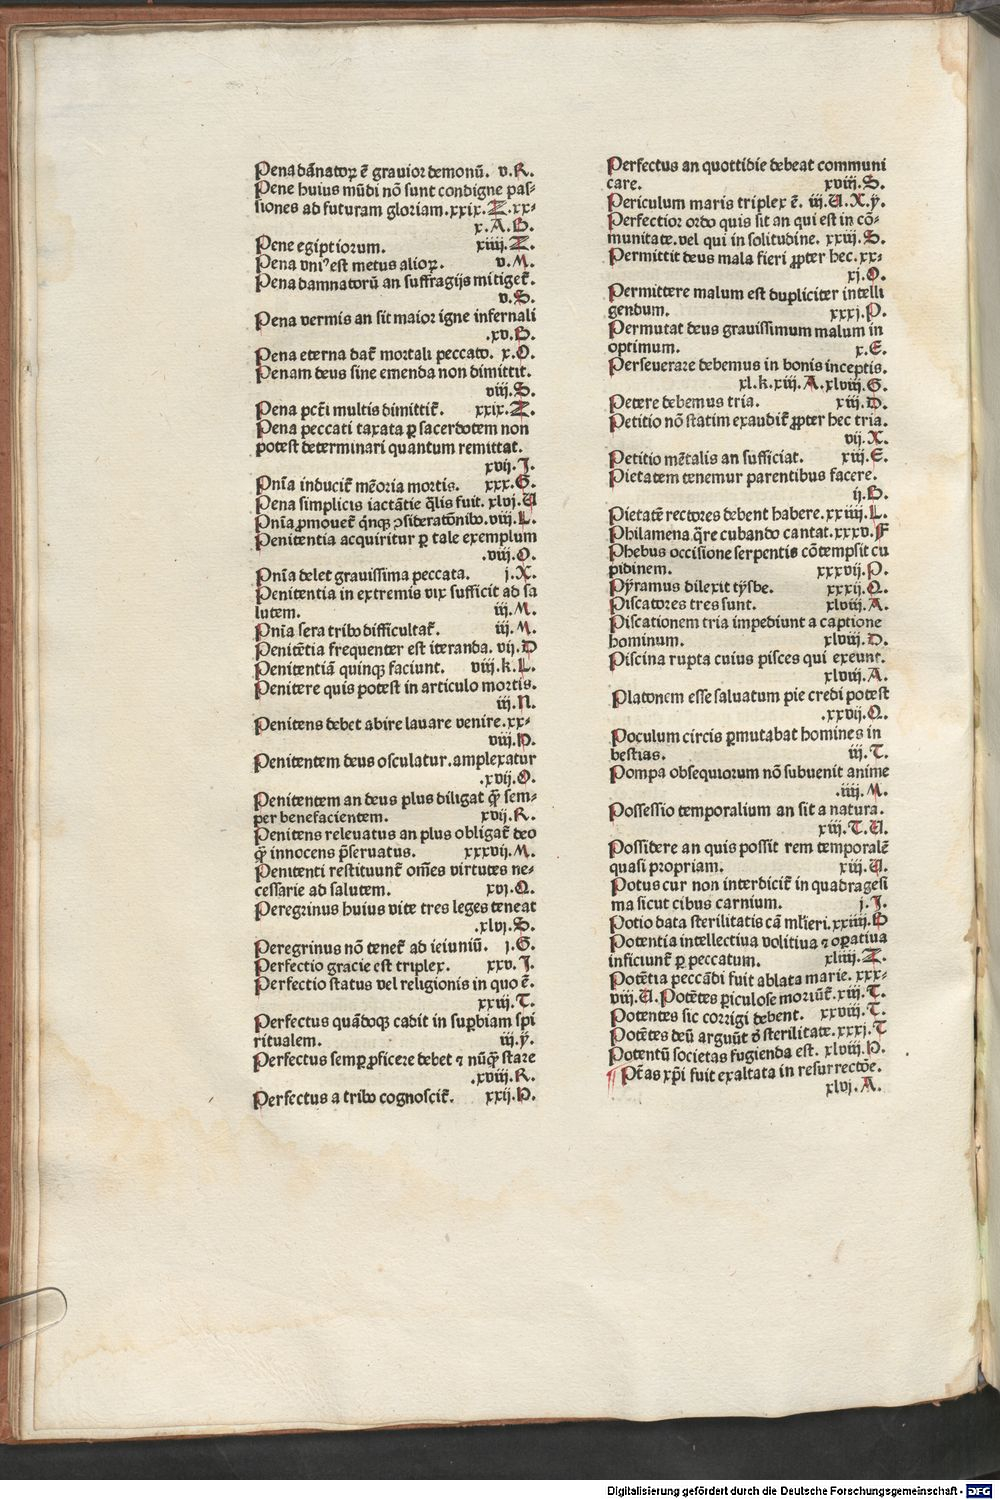 Pena dānatoꝝ ē grauior demonū. v.R.
Pene huius mūdi nō sunt condigne pas-
siones ad futuram gloriam.xxix.Z.xx-
x.A.B.
Pene egiptiorum. xiiii.Z.
Pena vniꝰ est metus alioꝝ. v.M.
Pena damnatorū an suffragijs mitiget᷑.
v.S.
Pena vermis an sit maior igne infernali
.xv.B.
Pena eterna dat᷑ mortali peccato. x.O.
Penam deus sine emenda non dimittit.
viii.S.
Pena pcti multis dimittit᷑. xxix.Z.
Pena peccati taxata ꝑ sacerdotem non
potest determinari quantum remittat.
xvij.I.
Pnīa inducit᷑ mēoria mortis. xxx.G.
Pena simplicis iactātie q̄lis fuit. xlvj.U
Pnīa ꝓmouet᷑ q̇nqꝫ ꝯsideratōnibꝰ.viii.L.
Penitentia acquiritur ꝑ tale exemplum
.viij.O.
Pnīa delet grauissima peccata. j.X.
Penitentia in extremis vix sufficit ad sa
lutem. iij.M.
Pnīa sera tribꝰ difficultat᷑. iij.M.
Penitētia frequenter est iteranda. vij.D
Penitentiā quinqꝫ faciunt. viij.k.L.
Penitere quis potest in articulo mortis.
iij.N.
Penitens debet abire lauare venire.xx-
viij.P.
Penitentem deus osculatur.amplexatur
.xvij.O.
Penitentem an deus plus diligat q̄ꝫ sem-
per benefacientem. xvij.R.
Penitens releuatus an plus obligat᷑ deo
q̄ꝫ innocens p̄seruatus. xxxvij.M.
Penitenti restituunt᷑ om̄es virtutes ne-
cessarie ad salutem. xvj.Q.
Peregrinus huius vite tres leges teneat
.xlvj.S.
Peregrinus nō tenet᷑ ad ieiuniū. j.G.
Perfectio gracie est triplex. xxv.I.
Perfectio status vel religionis in quo ē.
xxiij.T.
Perfectus quādoqꝫ cadit in suꝑbiam spi
ritualem. iij.y.
Perfectus semꝑ ꝓficere debet ⁊ nūq̄ꝫ stare
.xviij.R.
Perfectus a tribꝰ cognoscit᷑. xxij.P.
Perfectus an quottidie debeat communi
care. xviij.S.
Periculum maris triplex ē. iij.U.X.y.
Perfectior ordo quis sit an qui est in cō-
munitate.vel qui in solitudine. xxiij.S.
Permittit deus mala fieri ꝓpter hec.xx-
xj.O.
Permittere malum est dupliciter intelli
gendum. xxxj.P.
Permutat deus grauissimum malum in
optimum. x.E.
Perseuerare debemus in bonis inceptis.
xl.k.xiij.A.xlviij.G.
Petere debemus tria. xiij.D.
Petitio nō statim exaudit᷑ ꝓpter hec tria.
vij.X.
Petitio mētalis an sufficiat. xiij.E.
Pietatem tenemur parentibus facere.
ij.B.
Pietatē rectores debent habere.xxiiij.L.
Philamena q̄re cubando cantat.xxxv.F
Phebus occisione serpentis cōtempsit cu
pidinem. xxxvij.P.
Pyramus dilexit tysbe. xxxij.Q.
Piscatores tres sunt. xlviij.A.
Piscationem tria impediunt a captione
hominum. xlviij.D.
Piscina rupta cuius pisces qui exeunt.
xlviij.A.
Platonem esse saluatum pie credi potest
.xxvij.Q.
Poculum circis ꝑmutabat homines in
bestias. iij.T.
Pompa obsequiorum nō subuenit anime
.iiij.M.
Possessio temporalium an sit a natura.
xiij.T.U.
Possidere an quis possit rem temporalē
quasi propriam. xiij.U.
Potus cur non interdicit᷑ in quadragesi
ma sicut cibus carnium. j.I.
Potio data sterilitatis cā mlieri.xxiiij.B
Potentia intellectiua volitiua ⁊ oꝑatiua
inficiunt᷑ ꝑ peccatum. xliij.Z.
Potētia peccādi fuit ablata marie. xxx-
viij.U.Potētes ꝑiculose moriūt᷑.xiij.T.
Potentes sic corrigi debent. xxviij.T.
Potētes deū arguūt ō sterilitate.xxxj.T
Potentū societas fugienda est. xlviij.P.
Ptās xpi fuit exaltata in resurrectōe.
xlvj.A.
Digitalisierung gefördert durch die Deutsche Forschungsgemeinschaft - DFG